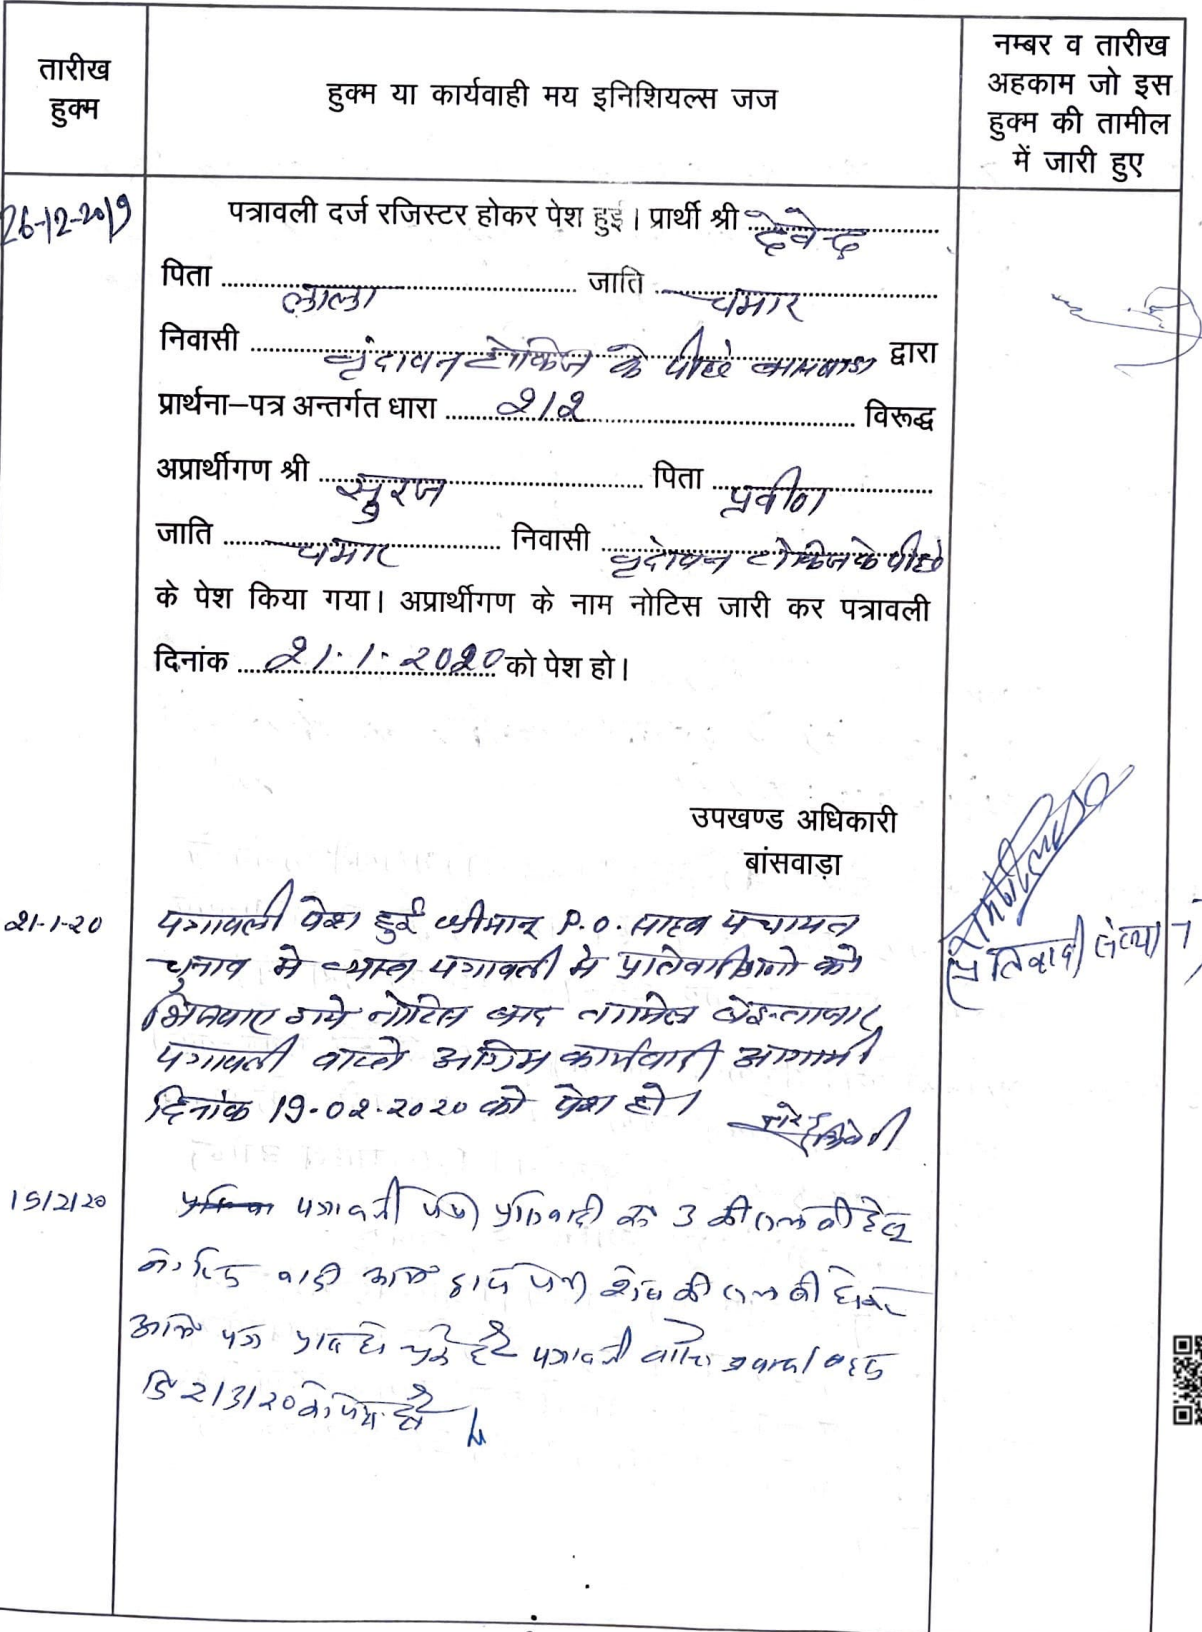 तारीख
हुक्म
हुक्म या कार्यवाही मय इनिशियल्स जज
नम्बर व तारीख
अहकाम जो इस
हुक्म की तामील
में जारी हुए
26-12-2019
पत्रावली दर्ज रजिस्टर होकर पेश हुई। प्रार्थी श्री देवेन्द्र
पिता लाला जाति चमार
निवासी वृंदावन टोकिज के पीछे द्वारा
प्रार्थना-पत्र अन्तर्गत धारा 212 विरूद्ध
अप्रार्थीगण श्री सुरज पिता प्रवीण
जाति चमार निवासी वृंदावन टोकिज के पीछे
के पेश किया गया। अप्रार्थीगण के नाम नोटिस जारी कर पत्रावली
दिनांक 21.1.2020 को पेश हो।
उपखण्ड अधिकारी
बांसवाड़ा
21-1-20
पत्रावली पेश हुई श्रीमान् P.O. साहब पंचायत
चुनाव मे व्यस्त पत्रावली मे प्रतिवादीगणो को
भिजवाए गये नोटिस बाद तामिल
पत्रावली वास्ते अग्रिम कार्यवाही आगामी
दिनांक 19-02-2020 को पेश हो।
(प्रतिवादी संख्या 1)
19/2/20
पत्रावली पेश प्रतिवादी सं 3 की तलबी हेतु
शेष की तलबी होकर
पत्रावली
दि 2/3/20 को पेश हो